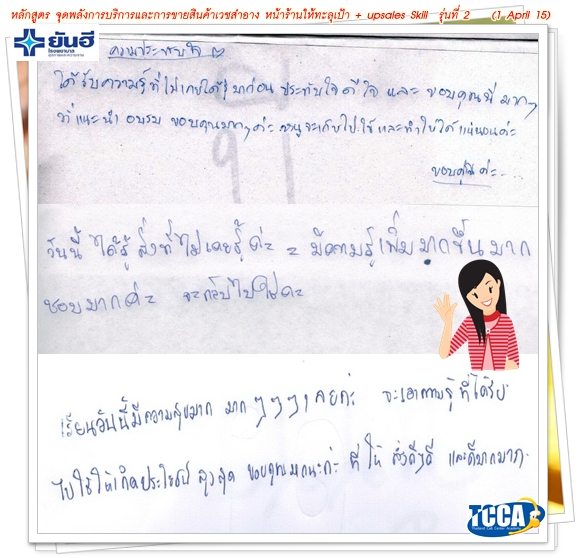 หลักสูตร จุดพลังการบริการและการขายสินค้าเวชสำอาง หน้าร้านให้ทะลุเป้า + upsales Skill รุ่นที่ 2 (1 April 15)
ยันฮี
โรงพยาบาล
ความประทับใจ
ได้รับความรู้ที่ไม่เคยได้รู้มาก่อน ประทับใจ ดีใจ และ ขอบคุณพี่ มากๆ
ที่แนะนำ อบรม ขอบคุณมากๆค่ะ หนูจะเก็บไปใช้ และทำให้ได้แน่นอนค่ะ
ขอบคุณค่ะ
วันนี้ ได้รู้ สิ่งที่ไม่เคยรู้ค่ะ = มีความรู้เพิ่มมากขึ้นมาก
ชอบมากค่ะ จะกลับไปใช้ค่ะ
เรียนวันนี้มีความสุขมาก มาก ๆๆๆๆ เลยค่ะ จะเอาความรู้ ที่ได้รับ
ไปใช้ให้เกิดประโยชน์ สูงสุด ขอบคุณมากนะค่ะ ที่ ให้ สิ่งดีๆดี และดีมากมาก
TCCA
Thailand Call Center Academy